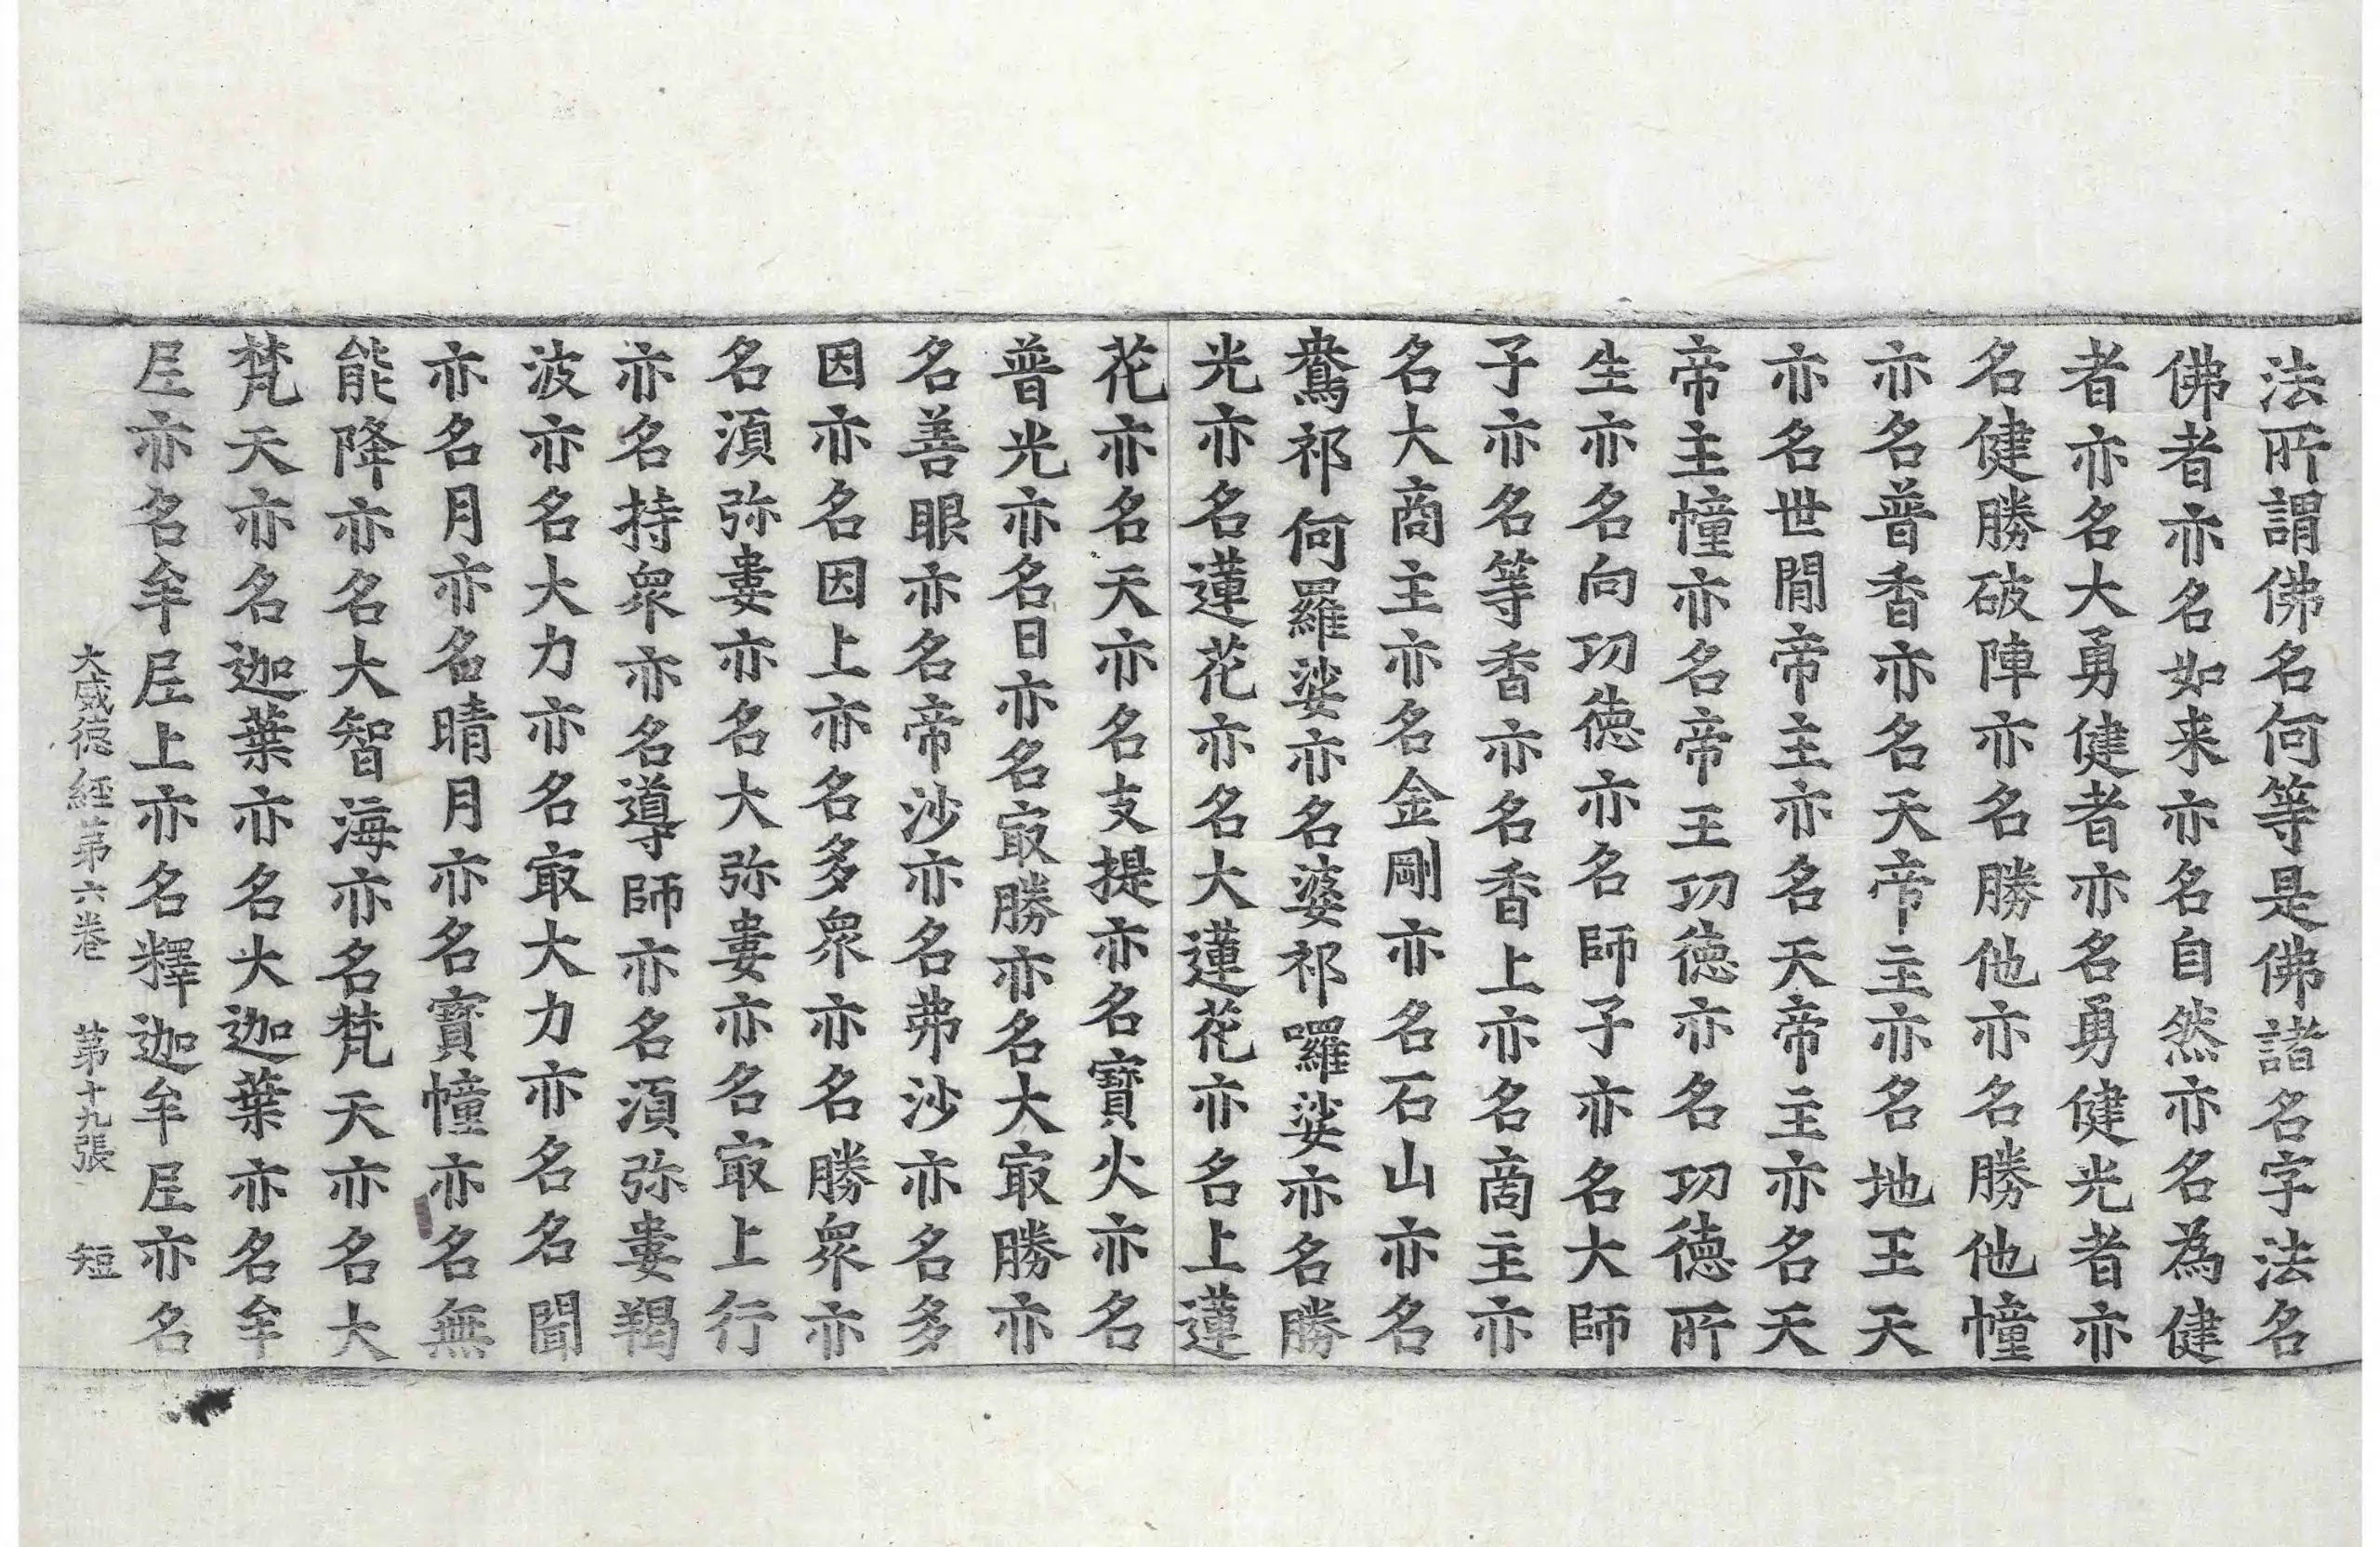 法所謂佛名何等是佛諸名字法名
佛者亦名如来亦名自然亦名為健
者亦名大勇健者亦名勇健光者亦
名健勝破陣亦名勝他亦名勝他幢
亦名普香亦名天帝主亦名地王天
亦名世間帝主亦名天帝主亦名天
帝主幢亦名帝王功德亦名功德所
生亦名向功德亦名師子亦名大師
子亦名等香亦名香上亦名商主亦
名大商主亦名金剛亦名石山亦名
鴦祁何羅娑亦名婆祁囉娑亦名勝
光亦名蓮花亦名大蓮花亦名上蓮
花亦名天亦名支提亦名寶火亦名
普光亦名日亦名㝡勝亦名大㝡勝亦
名善眼亦名帝沙亦名弗沙亦名多
因亦名因上亦名多衆亦名勝衆亦
名湏弥婁亦名大弥婁亦名㝡上行
亦名持衆亦名導師亦名湏弥婁羯
波亦名大力亦名㝡大力亦名名聞
亦名月亦名晴月亦名寳幢亦名無
能降亦名大智海亦名梵天亦名大
梵天亦名迦葉亦名大迦葉亦名牟
尼亦名牟尼上亦名釋迦牟尼亦名
大威德經第六卷 第十九張 短